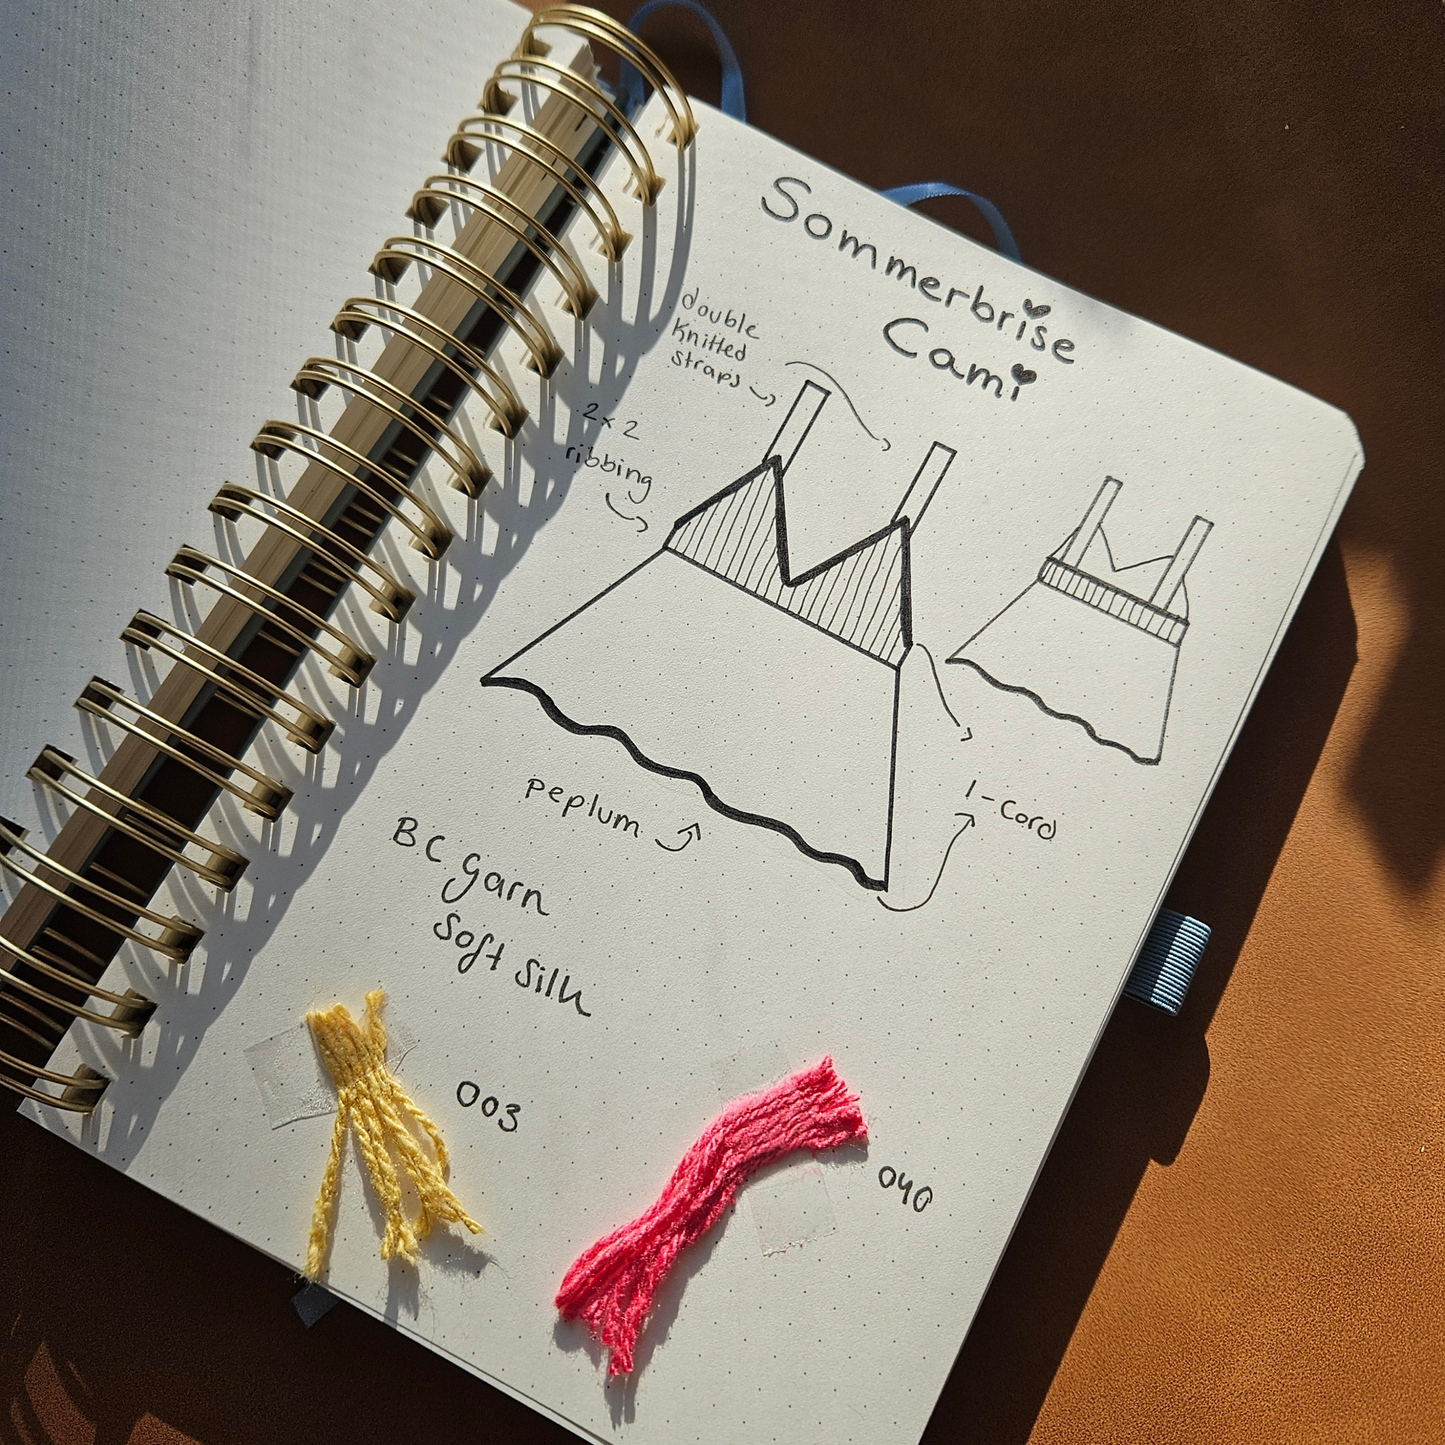 Sommerbrise
Cami
double
knitted
straps
2x2
ribbing
peplum
I-Cord
BC garn
Soft Silk
003
040